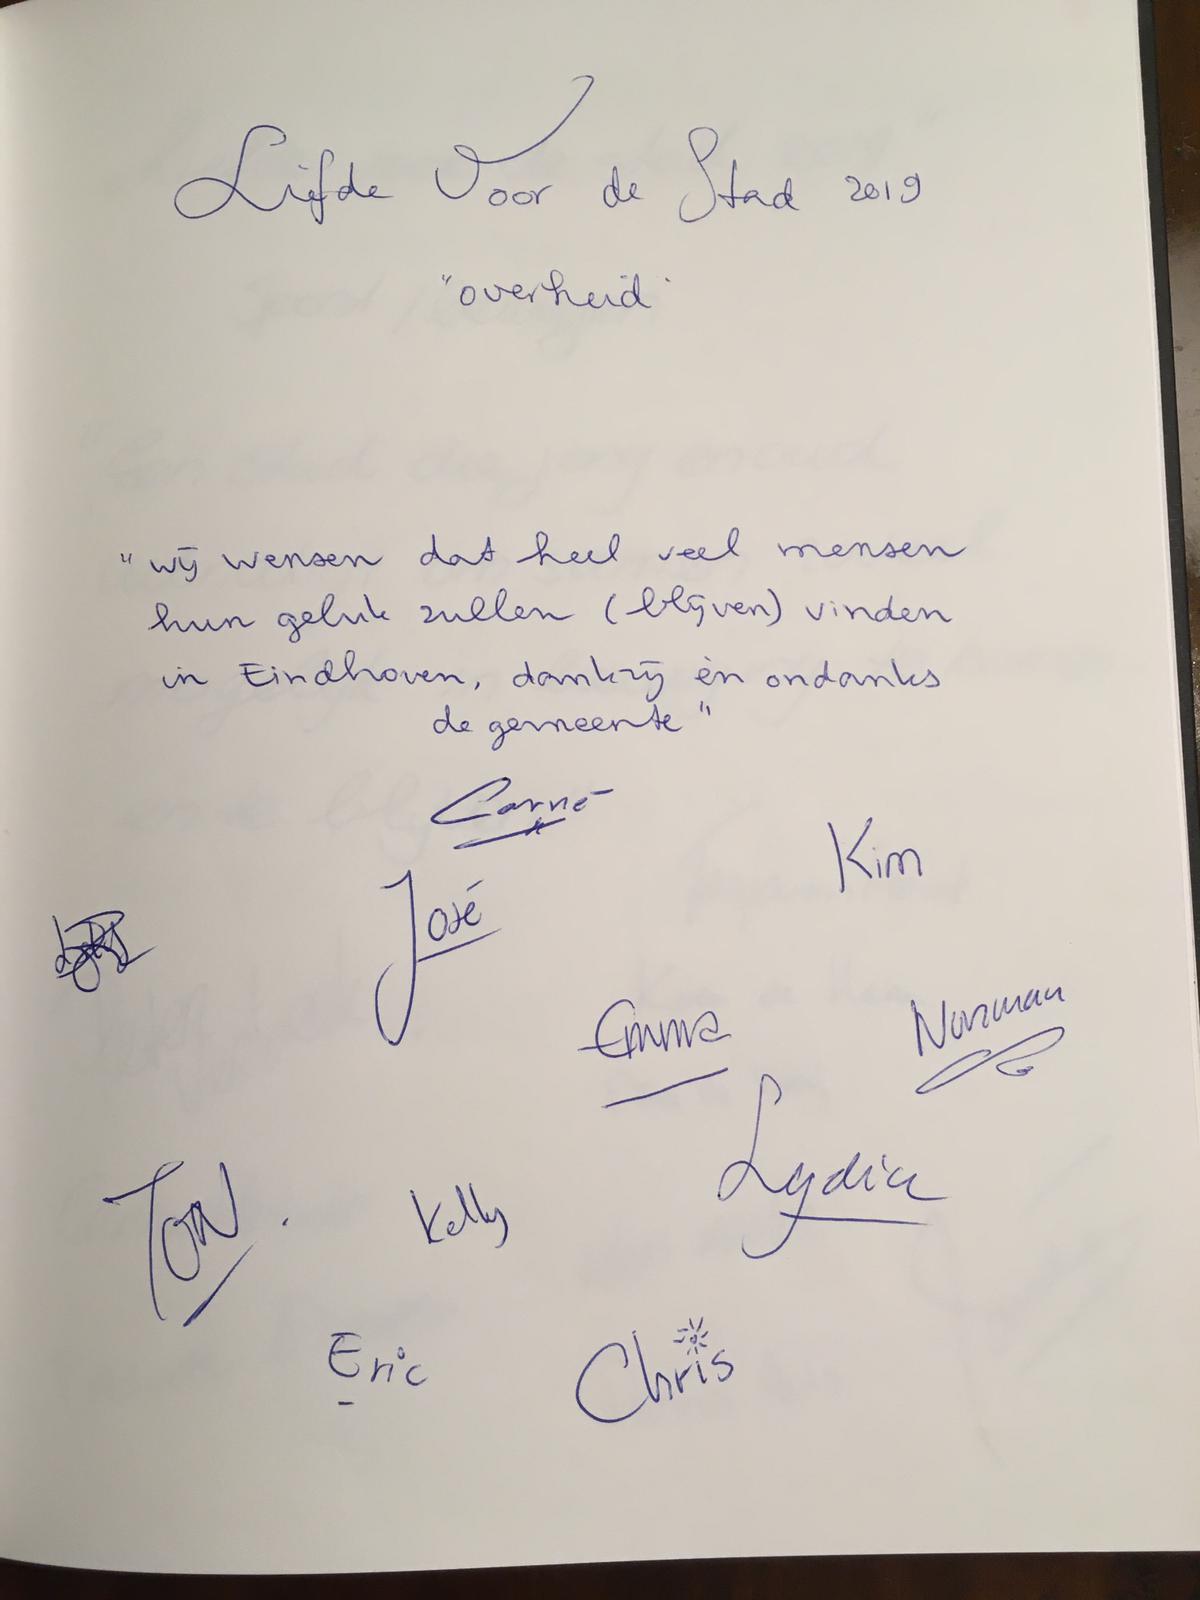 Liefde Voor de Stad 2019
"overheid"
"wij wensen dat heel veel mensen
hun geluk zullen (blijven) vinden
in Eindhoven, dankzij èn ondanks
de gemeente"
Carné
Kim
José
Emma
Norman
Lydia
Ton.
Kelly
Eric
Chris